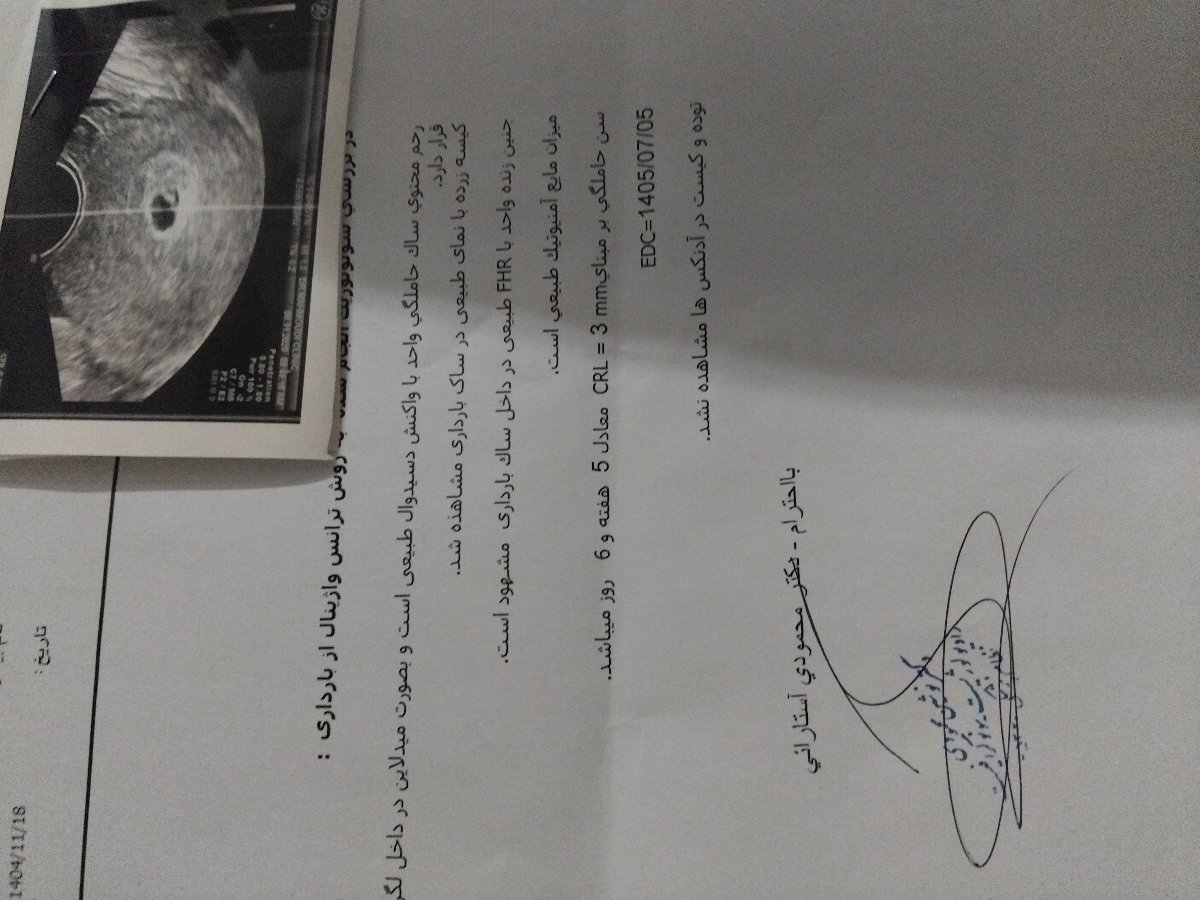 تاریخ :
1404/11/18
روش ترانس واژینال از بارداری :
رحم محتوي ساك حاملگي واحد با واکنش دسیدوال طبیعی است و بصورت میدلاین در داخل لگن
قرار دارد.
کیسه زرده با نمای طبیعی در ساک بارداری مشاهده شد.
جنین زنده واحد با FHR طبیعی در داخل ساك بارداری مشهود است.
میزان مایع آمنیوتیك طبیعي است.
سن حاملگي بر مبناي CRL = 3 mm معادل 5 هفته و 6 روز میباشد.
EDC=1405/07/05
توده و کیست در آدنکس ها مشاهده نشد.
بااحترام - دکتر محمودي آستاراني